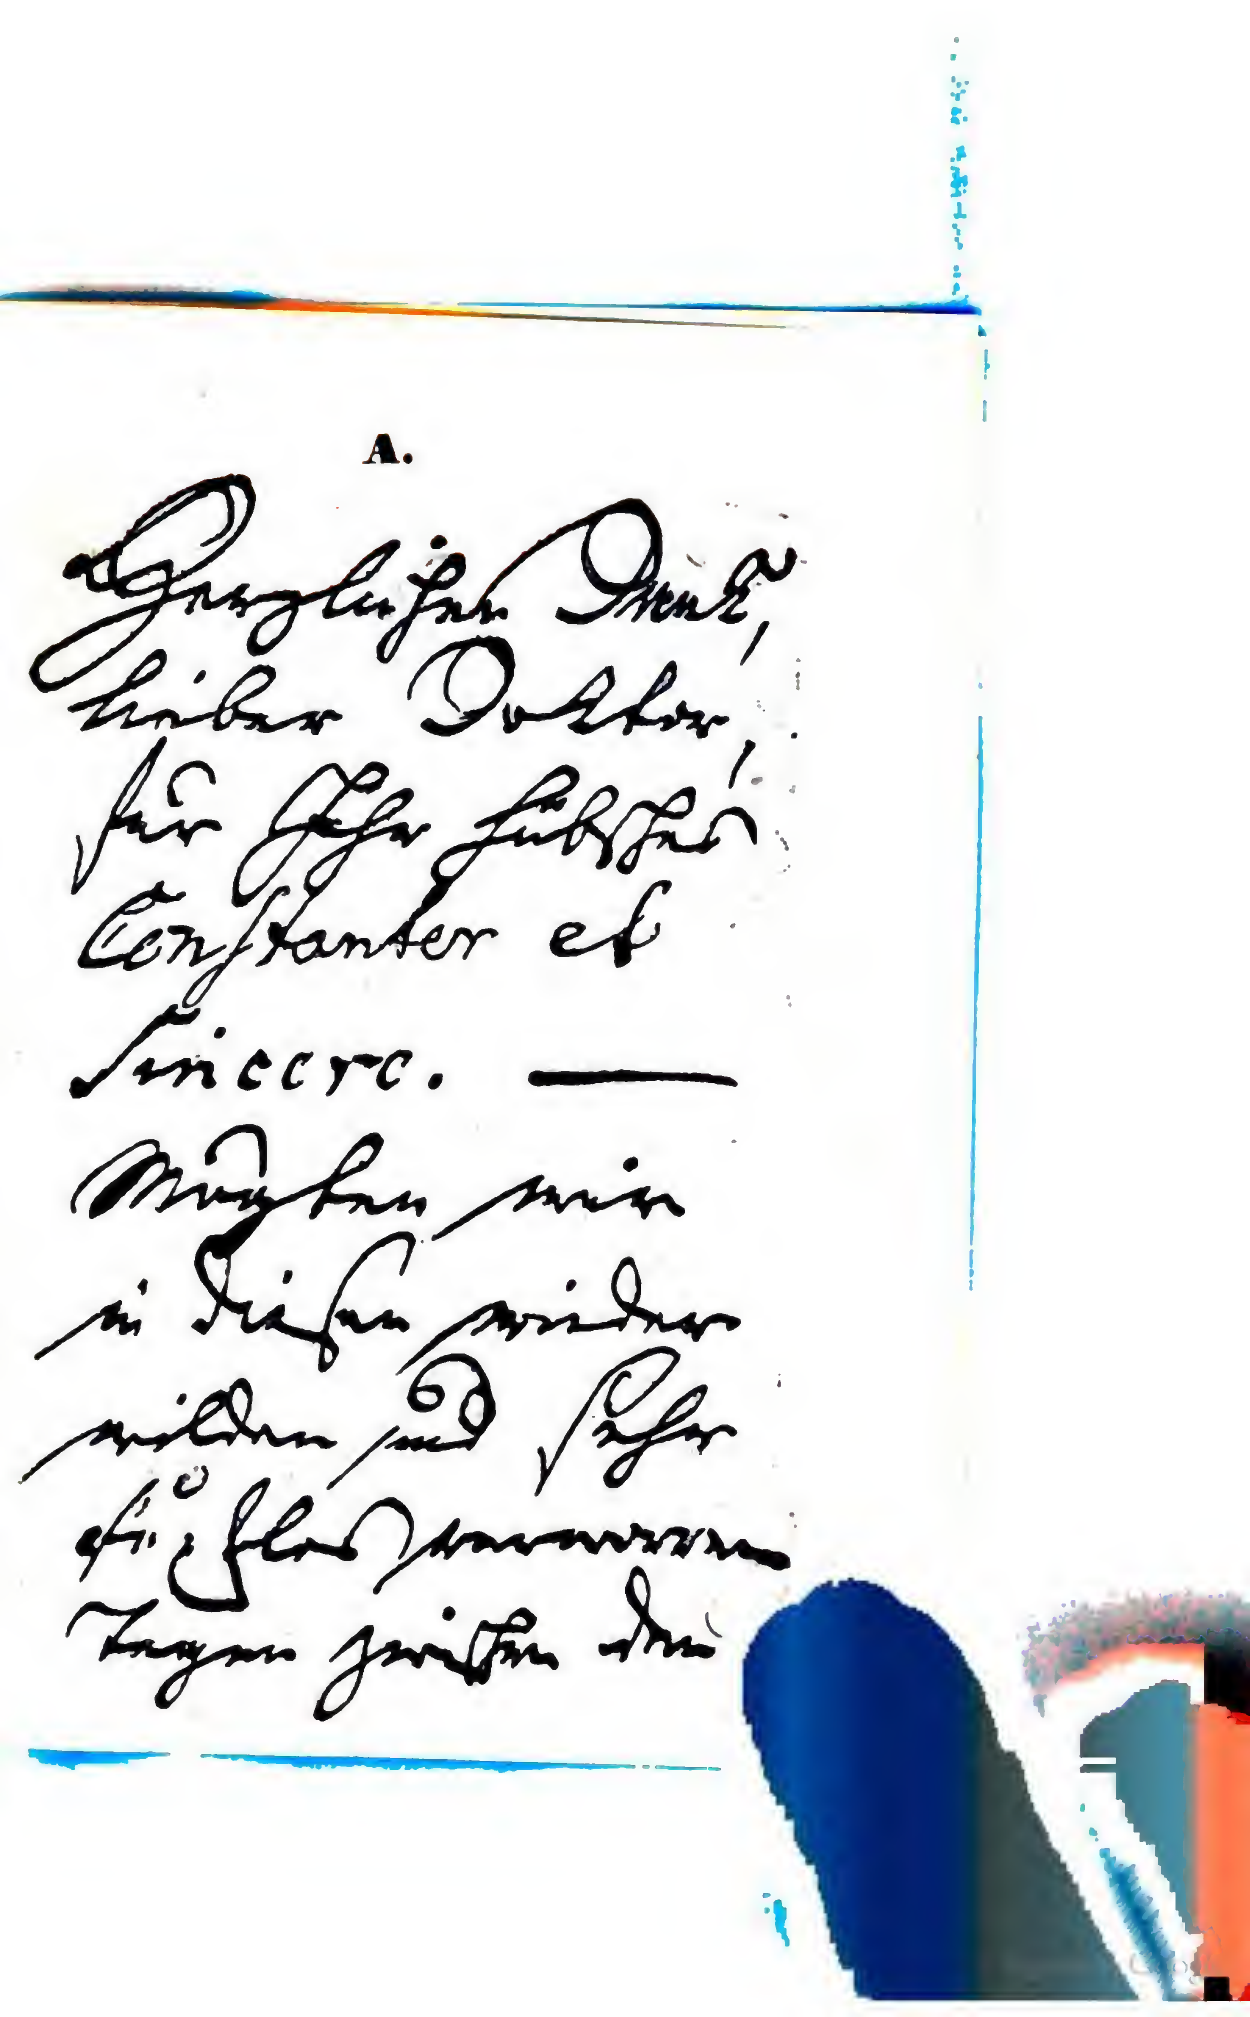 A.
Herzlichen Dank,
lieber Doktor,
für Ihr hübsches
Constanter et
Sincere. —
Mögten wir
in diesen wieder
wilden und sehr
verworren
Tagen zwischen den